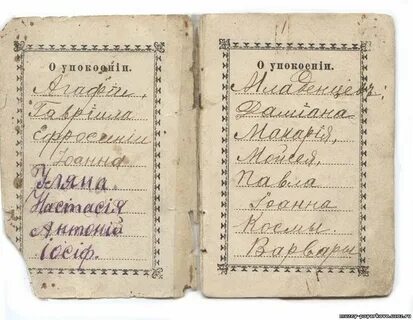 О упокоеніи.
Агафіи,
Гавріила
Ефросиніи
Іоанна
Уляна
Настасія
Антоній
Іосіф.
О упокоеніи.
Младенцевъ
Даміана
Макарія,
Моисея,
Павла
Іоанна
Космы
Варвары